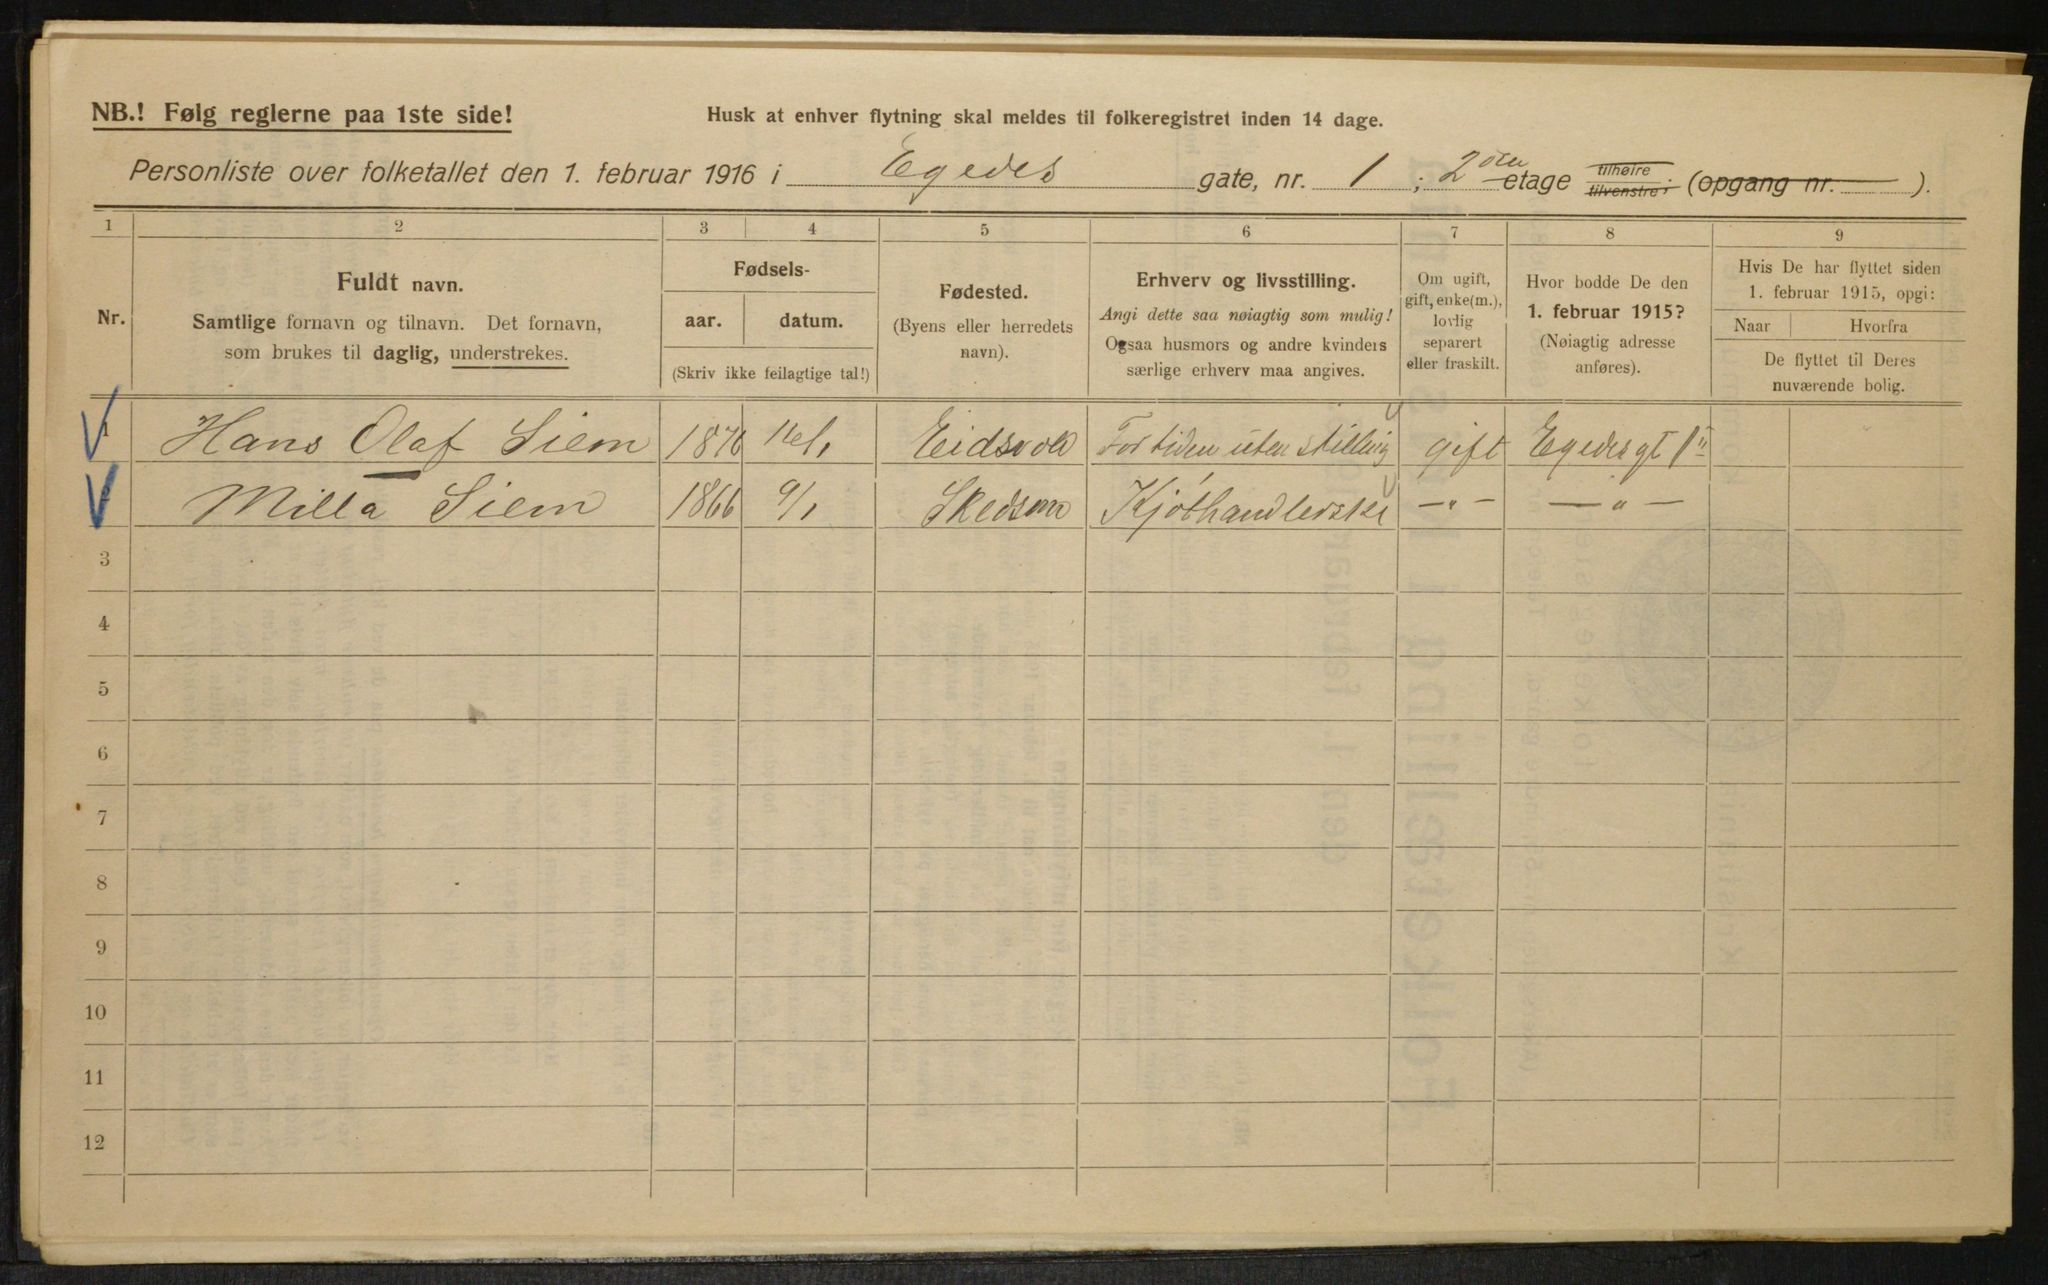 NB.! Følg reglerne paa 1ste side!
Husk at enhver flytning skal meldes til folkeregistret inden 14 dage.
Personliste over folketallet den 1. februar 1916 i Egedes gate, nr. 1 ; 2den etage tilhøire tilvenstre; (opgang nr. ).
1 2 3 4 5 6 7 8 9
Nr.
Fuldt navn.
Samtlige fornavn og tilnavn. Det fornavn,
som brukes til daglig, understrekes.
Fødsels-
aar. datum.
(Skriv ikke feilagtige tal!)
Fødested.
(Byens eller herredets
navn).
Erhverv og livsstilling.
Angi dette saa nøiagtig som mulig!
Ogsaa husmors og andre kvinders
særlige erhverv maa angives.
Om ugift,
gift, enke(m.),
lovlig
separert
eller fraskilt.
Hvor bodde De den
1. februar 1915?
(Nøiagtig adresse
anføres).
Hvis De har flyttet siden
1. februar 1915, opgi:
Naar Hvorfra
De flyttet til Deres
nuværende bolig.
1 Hans Olaf Siem 1876 Eidsvold For tiden uten stilling gift Egedesgt 1
Milla Siem 1866 9/1 Skedsmo Kjøthandlerske —„— —„—
3
4
5
6
7
8
9
10
11
12